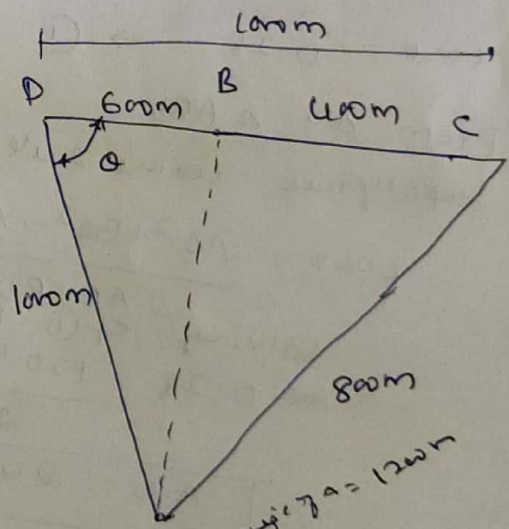 1000m
D 600m B 400m C
θ
1000m
800m
= 1200m